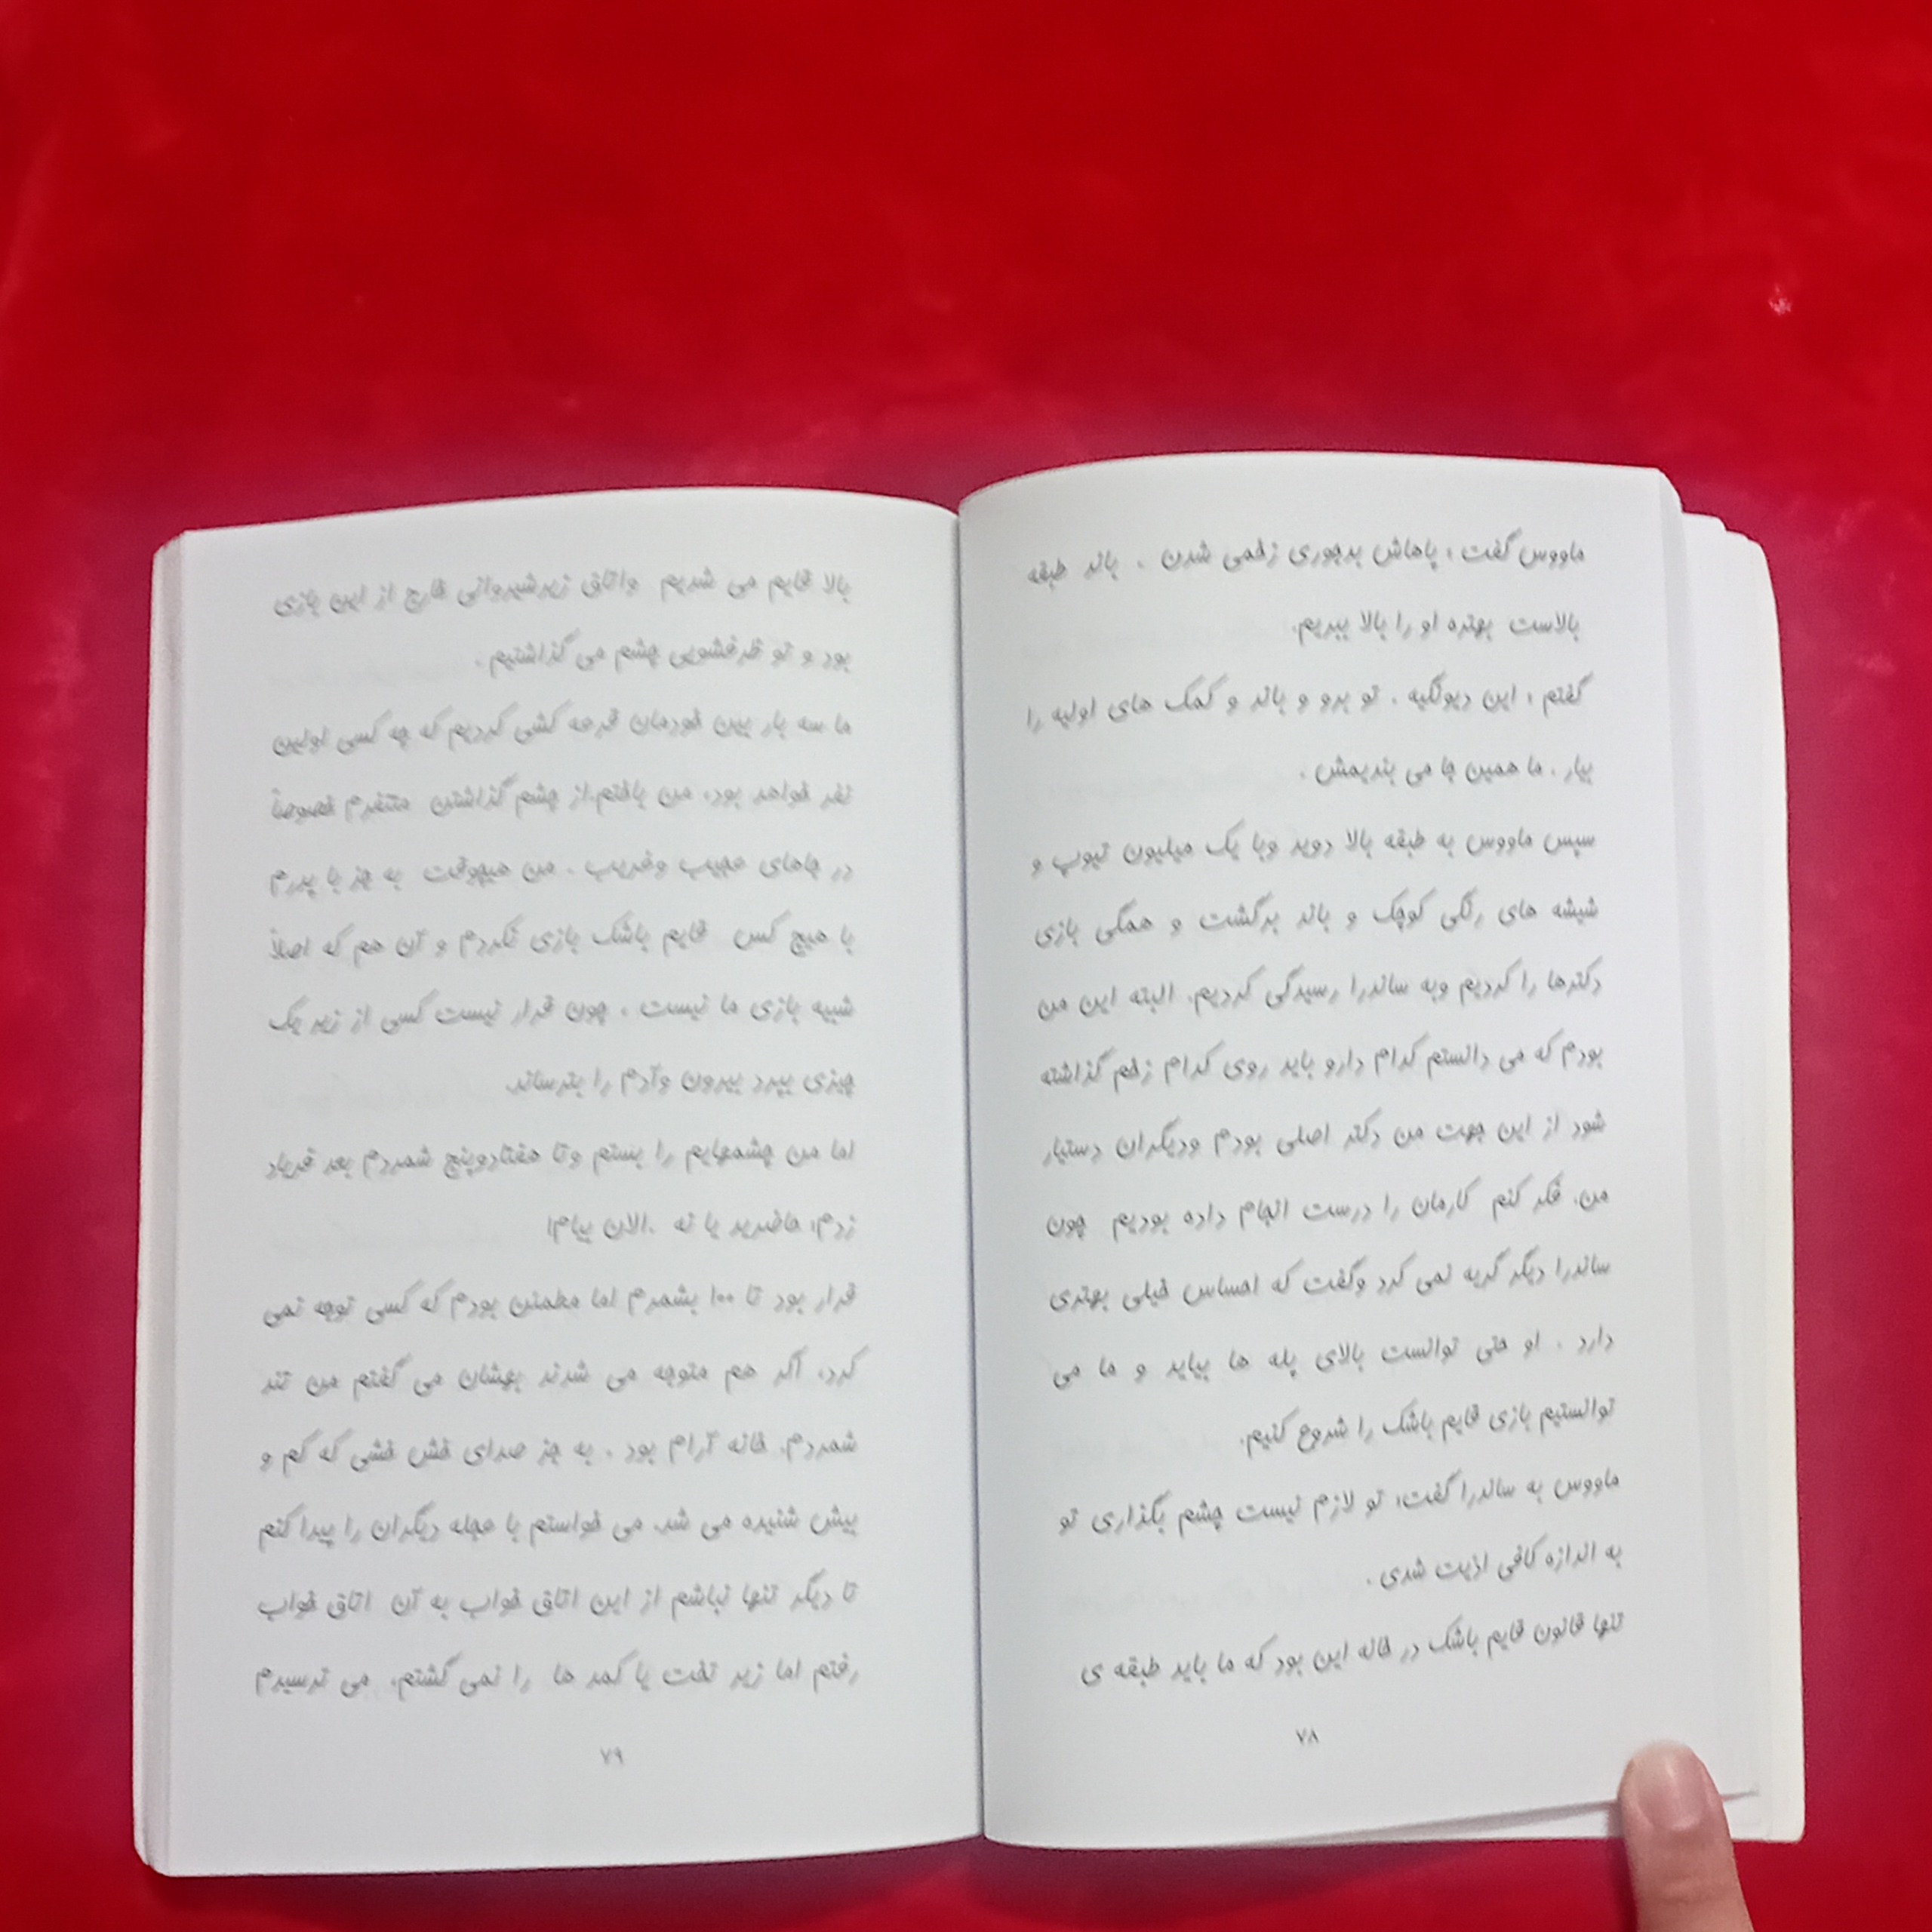 ماووس گفت : پاهاش بدجوری زخمی شدن . باند طبقه
بالاست بهتره او را بالا ببریم.
گفتم : این دیونگیه . تو برو و باند و کمک های اولیه را
بیار . ما همین جا می بندیمش .
سپس ماووس به طبقه بالا دوید وبا یک میلیون تیوپ و
شیشه های رنگی کوچک و باند برگشت و همگی بازی
دکترها را کردیم وبه ساندرا رسیدگی کردیم. البته این من
بودم که می دانستم کدام دارو باید روی کدام زخم گذاشته
شود از این جهت من دکتر اصلی بودم ودیگران دستیار
من. فکر کنم کارمان را درست انجام داده بودیم چون
ساندرا دیگر گریه نمی کرد وگفت که احساس خیلی بهتری
دارد . او حتی توانست بالای پله ها بیاید و ما می
توانستیم بازی قایم باشک را شروع کنیم.
ماووس به ساندرا گفت: تو لازم نیست چشم بگذاری تو
به اندازه کافی اذیت شدی .
تنها قانون قایم باشک در خانه این بود که ما باید طبقه ی
۷۸
بالا قایم می شدیم واتاق زیرشیروانی خارج از این بازی
بود و تو ظرفشویی چشم می گذاشتیم .
ما سه بار بین خودمان قرعه کشی کردیم که چه کسی اولین
نفر خواهد بود، من باختم.از چشم گذاشتن متنفرم خصوصاً
در جاهای عجیب وغریب . من هیچوقت به جز با پدرم
با هیچ کس قایم باشک بازی نکردم و آن هم که اصلاً
شبیه بازی ما نیست ، چون قرار نیست کسی از زیر یک
چیزی بپرد بیرون وآدم را بترساند.
اما من چشمهایم را بستم وتا هفتادوپنج شمردم بعد فریاد
زدم: حاضرید یا نه .الان بیام!
قرار بود تا ۱۰۰ بشمرم اما مطمئن بودم که کسی توجه نمی
کرد، اگر هم متوجه می شدند بهشان می گفتم من تند
شمردم. خانه آرام بود . به جز صدای خش خشی که کم و
بیش شنیده می شد. می خواستم با عجله دیگران را پیدا کنم
تا دیگر تنها نباشم از این اتاق خواب به آن اتاق خواب
رفتم اما زیر تخت یا کمد ها را نمی گشتم، می ترسیدم
۷۹